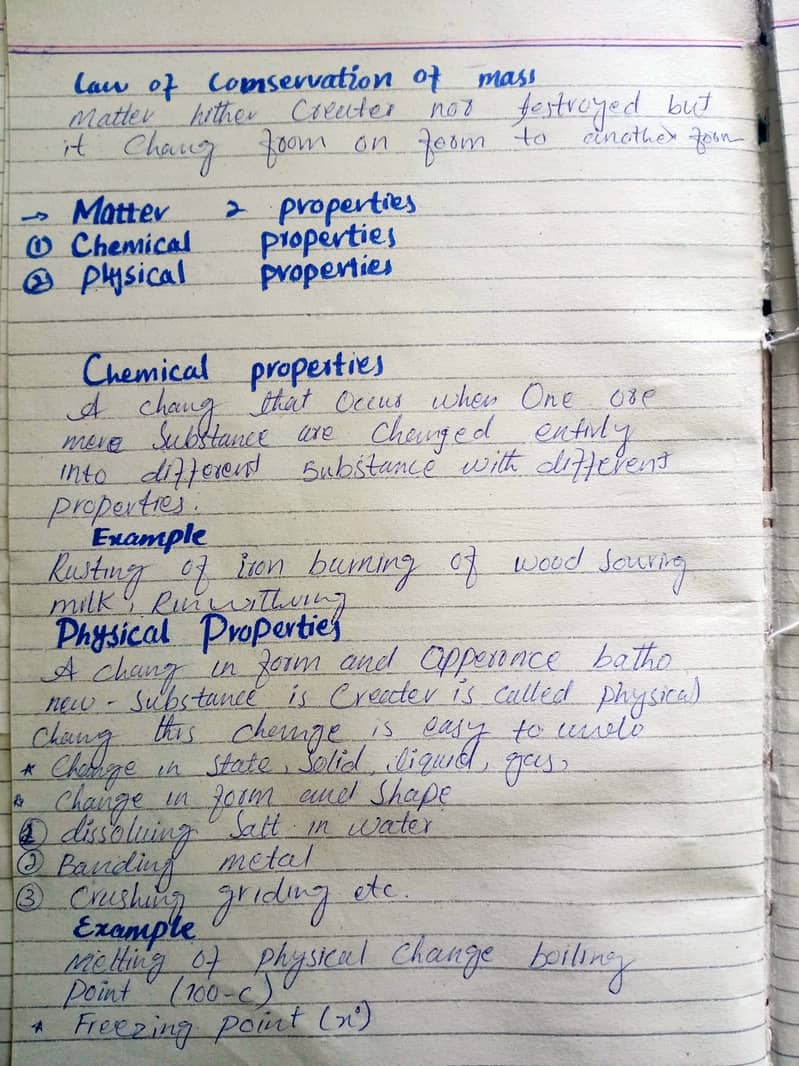 Law of Comservation of mass
Matter hither Creater nor destroyed but
it Chang foom on feom to another foom
→ Matter 2 properties
① Chemical properties
② physical properties
Chemical properties
A chang that Occur when One ore
mere Substance are Changed entirly
into different substance with different
properties.
Example
Rusting of iron burning of wood Souring
milk,
Physical Properties
A chang in form and Apperonce batho
new - Substance is Creater is called physical
Chang this chemge is easy to undo
* Change in state, Solid, liquid, gas,
* Change in form and Shape
① dissolving Salt in water
② Banding metal
③ Crushing griding etc.
Example
Melting of physical Change boiling
point (100-c)
* Freezing point